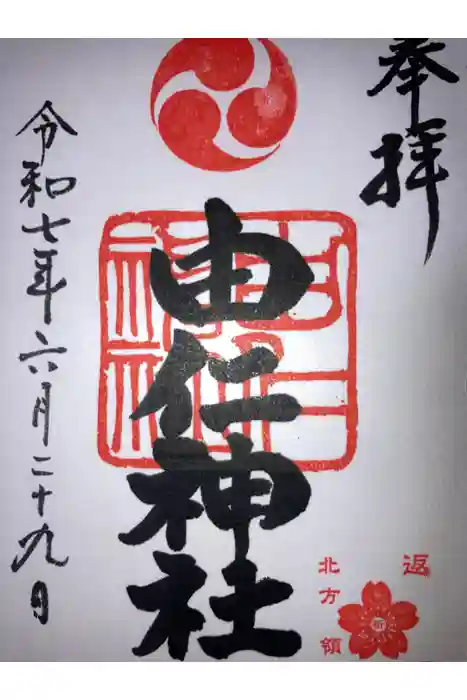 奉拝
由仁神社
令和七年六月二十九日
返
北方領
祈